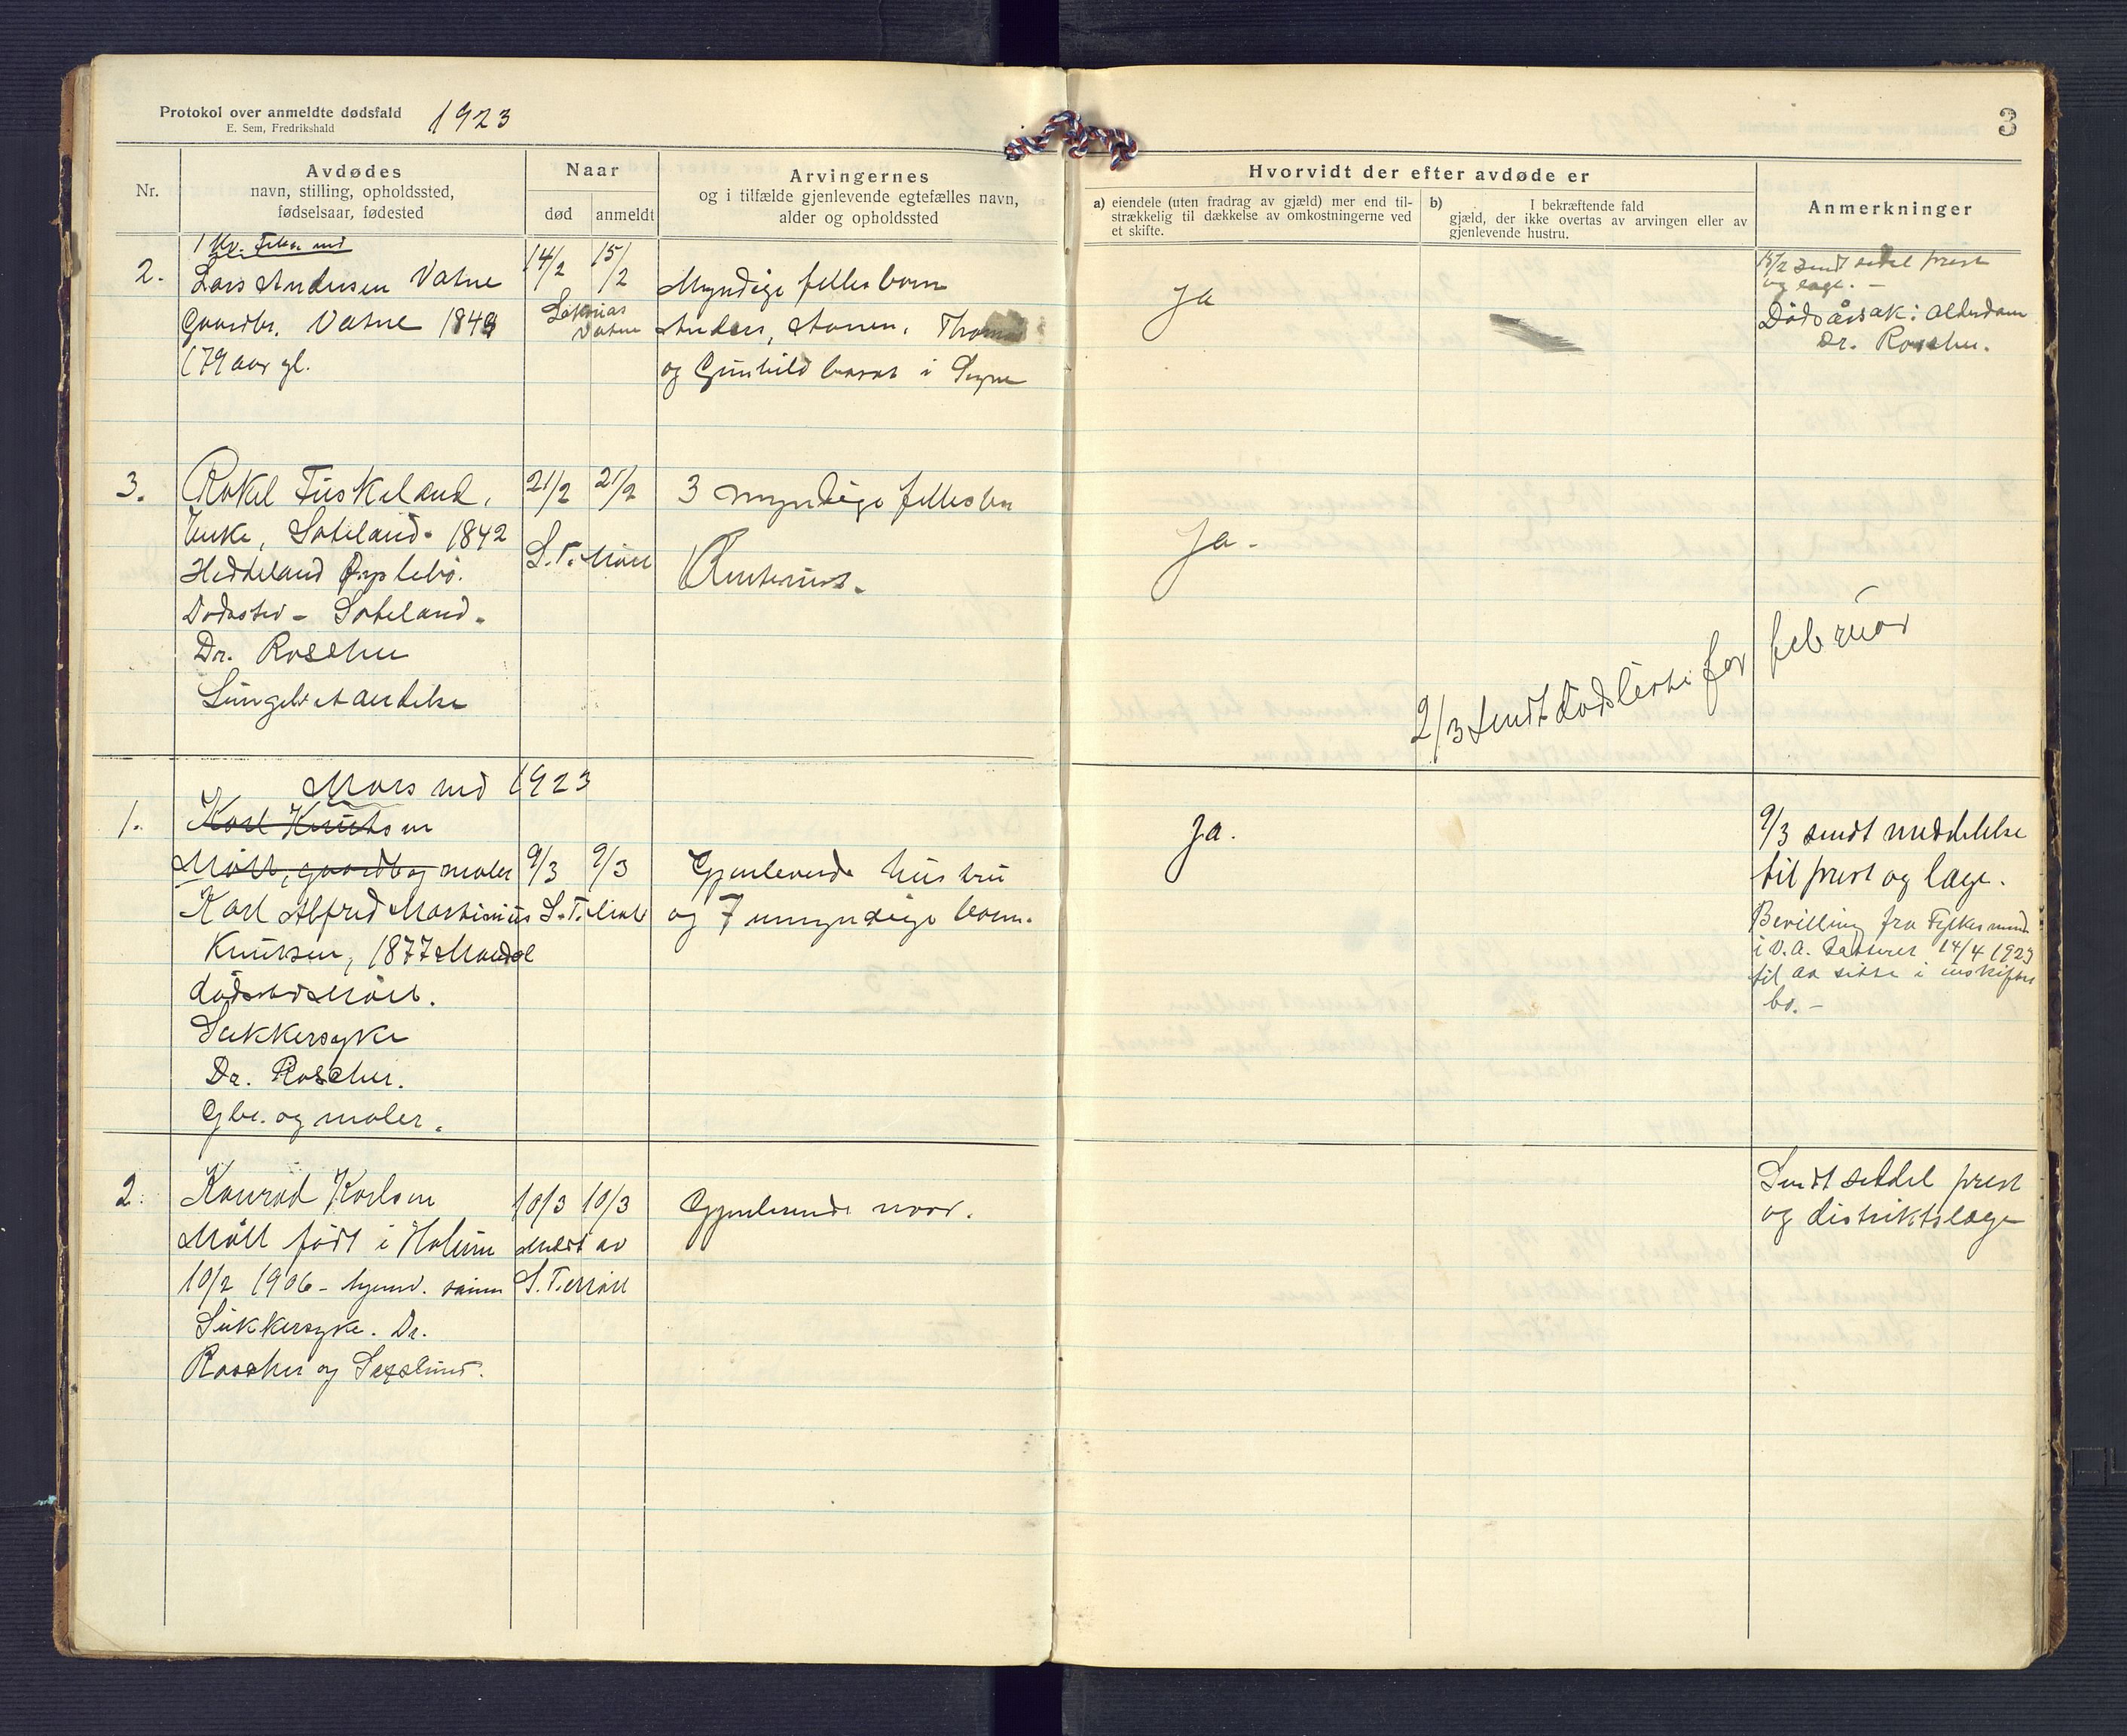 Protokol over anmeldte dødsfald
E. Sem, Fredrikshald
1923
3
Nr.
Avdødes
navn, stilling, opholdssted,
fødselsaar, fødested
Naar
død
anmeldt
Arvingernes
og i tilfælde gjenlevende egtefælles navn,
alder og opholdssted
Hvorvidt der efter avdøde er
a) eiendele (uten fradrag av gjæld) mer end til-
strækkelig til dækkelse av omkostningerne ved
et skifte.
b) I bekræftende fald
gjæld, der ikke overtas av arvingen eller av
gjenlevende hustru.
Anmerkninger
2.
Lars Andersen Vatne
Gaardbr. Vatne 1849
(79 aar gl.
14/2
15/2
Vatne
Myndige felles born
Anders, Aanen, Thomas
og Gunhild bosat i Søgne
Ja
15/2 sendt sedel prest
og læge. -
Dødsårsak: Alderdom
Dr. Roscher.
3.
Rakel Tuskeland,
Enke, Søteland. 1842
Heddeland Øyslebø.
Dødssted - Søteland.
Dr. Roscher
Lungebetændelse
21/2
21/2
S. T. Møll
3 myndige felles bn
Ja.
2/3 sendt Dødsliste for februar
Mars md 1923
1.
Karl Knutsen
Møll, gaardb og maler
Karl Alfred Martinius
Knutsen, 1877 Mandal
dødssted Møll.
Sukkersyke
Dr. Roscher.
Gbr. og maler.
9/3
9/3
S. T. Møll
Gjenlevende hustru
og 7 umyndige born.
Ja.
9/3 sendt meddelelse
til prest og læge.
Bevilling fra Fylkesmand
i V. A. datteret 14/4 1923
til at sitte i uskiftet
bo. -
2.
Konrad Karlsen
Møll født i Holum
10/2 1906 - hjemv. sønn
Sukkersyke. Dr.
Roscher og Saxlund.
10/3
10/3
Meldt av
S. T. Møll
Gjenlevende mor.
Sendt seddel prest
og distriktslæge